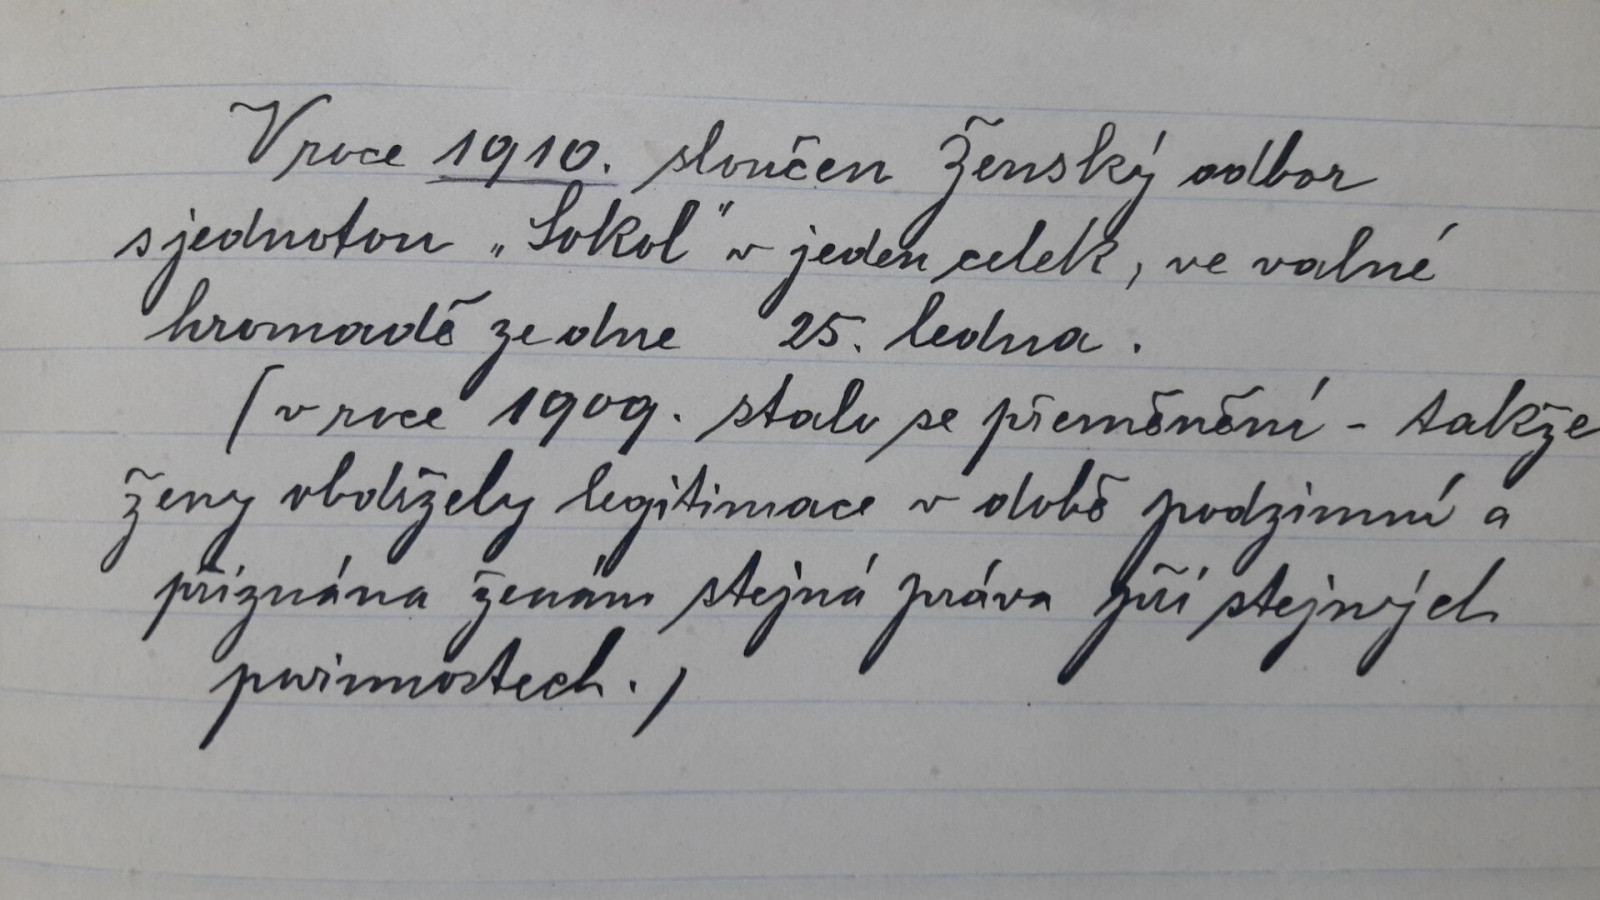 V roce 1910. sloučen Ženský odbor
s jednotou „Sokol" v jeden celek, ve valné
hromadě ze dne 25. ledna.
(v roce 1909. stalo se přeměnění - takže
ženy obdržely legitimace v době podzimní a
přiznána ženám stejná práva při stejných
povinnostech.)